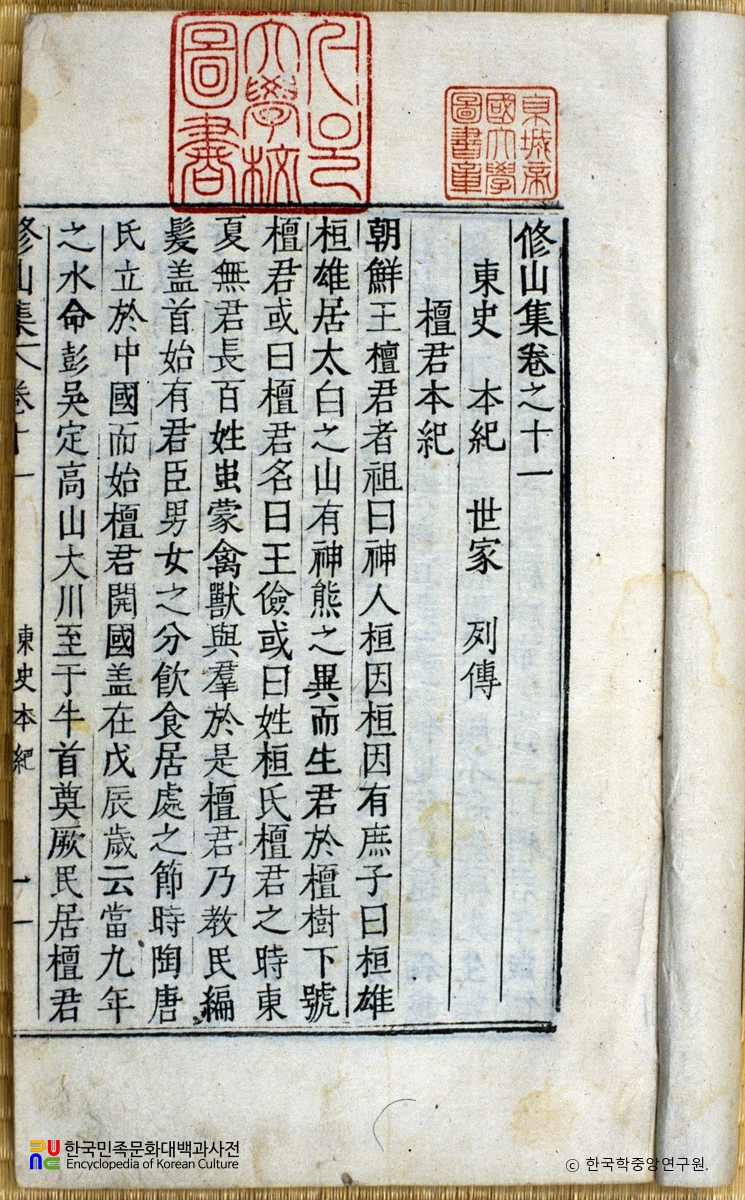 서울
大學校
圖書
京城帝
國大學
圖書章
修山集卷之十一
東史 本紀 世家 列傳
檀君本紀
朝鮮王檀君者祖曰神人桓因桓因有庶子曰桓雄
桓雄居太白之山有神熊之異而生君於檀樹下號
檀君或曰檀君名曰王儉或曰姓桓氏檀君之時東
夏無君長百姓蚩蒙禽獸與羣於是檀君乃敎民編
髮盖首始有君臣男女之分飮食居處之節時陶唐
氏立於中國而始檀君開國盖在戊辰歲云當九年
之水命彭吳定高山大川至于牛首奠厥民居檀君
修山集 卷十一
東史本紀
一
한국민족문화대백과사전
Encyclopedia of Korean Culture
© 한국학중앙연구원.